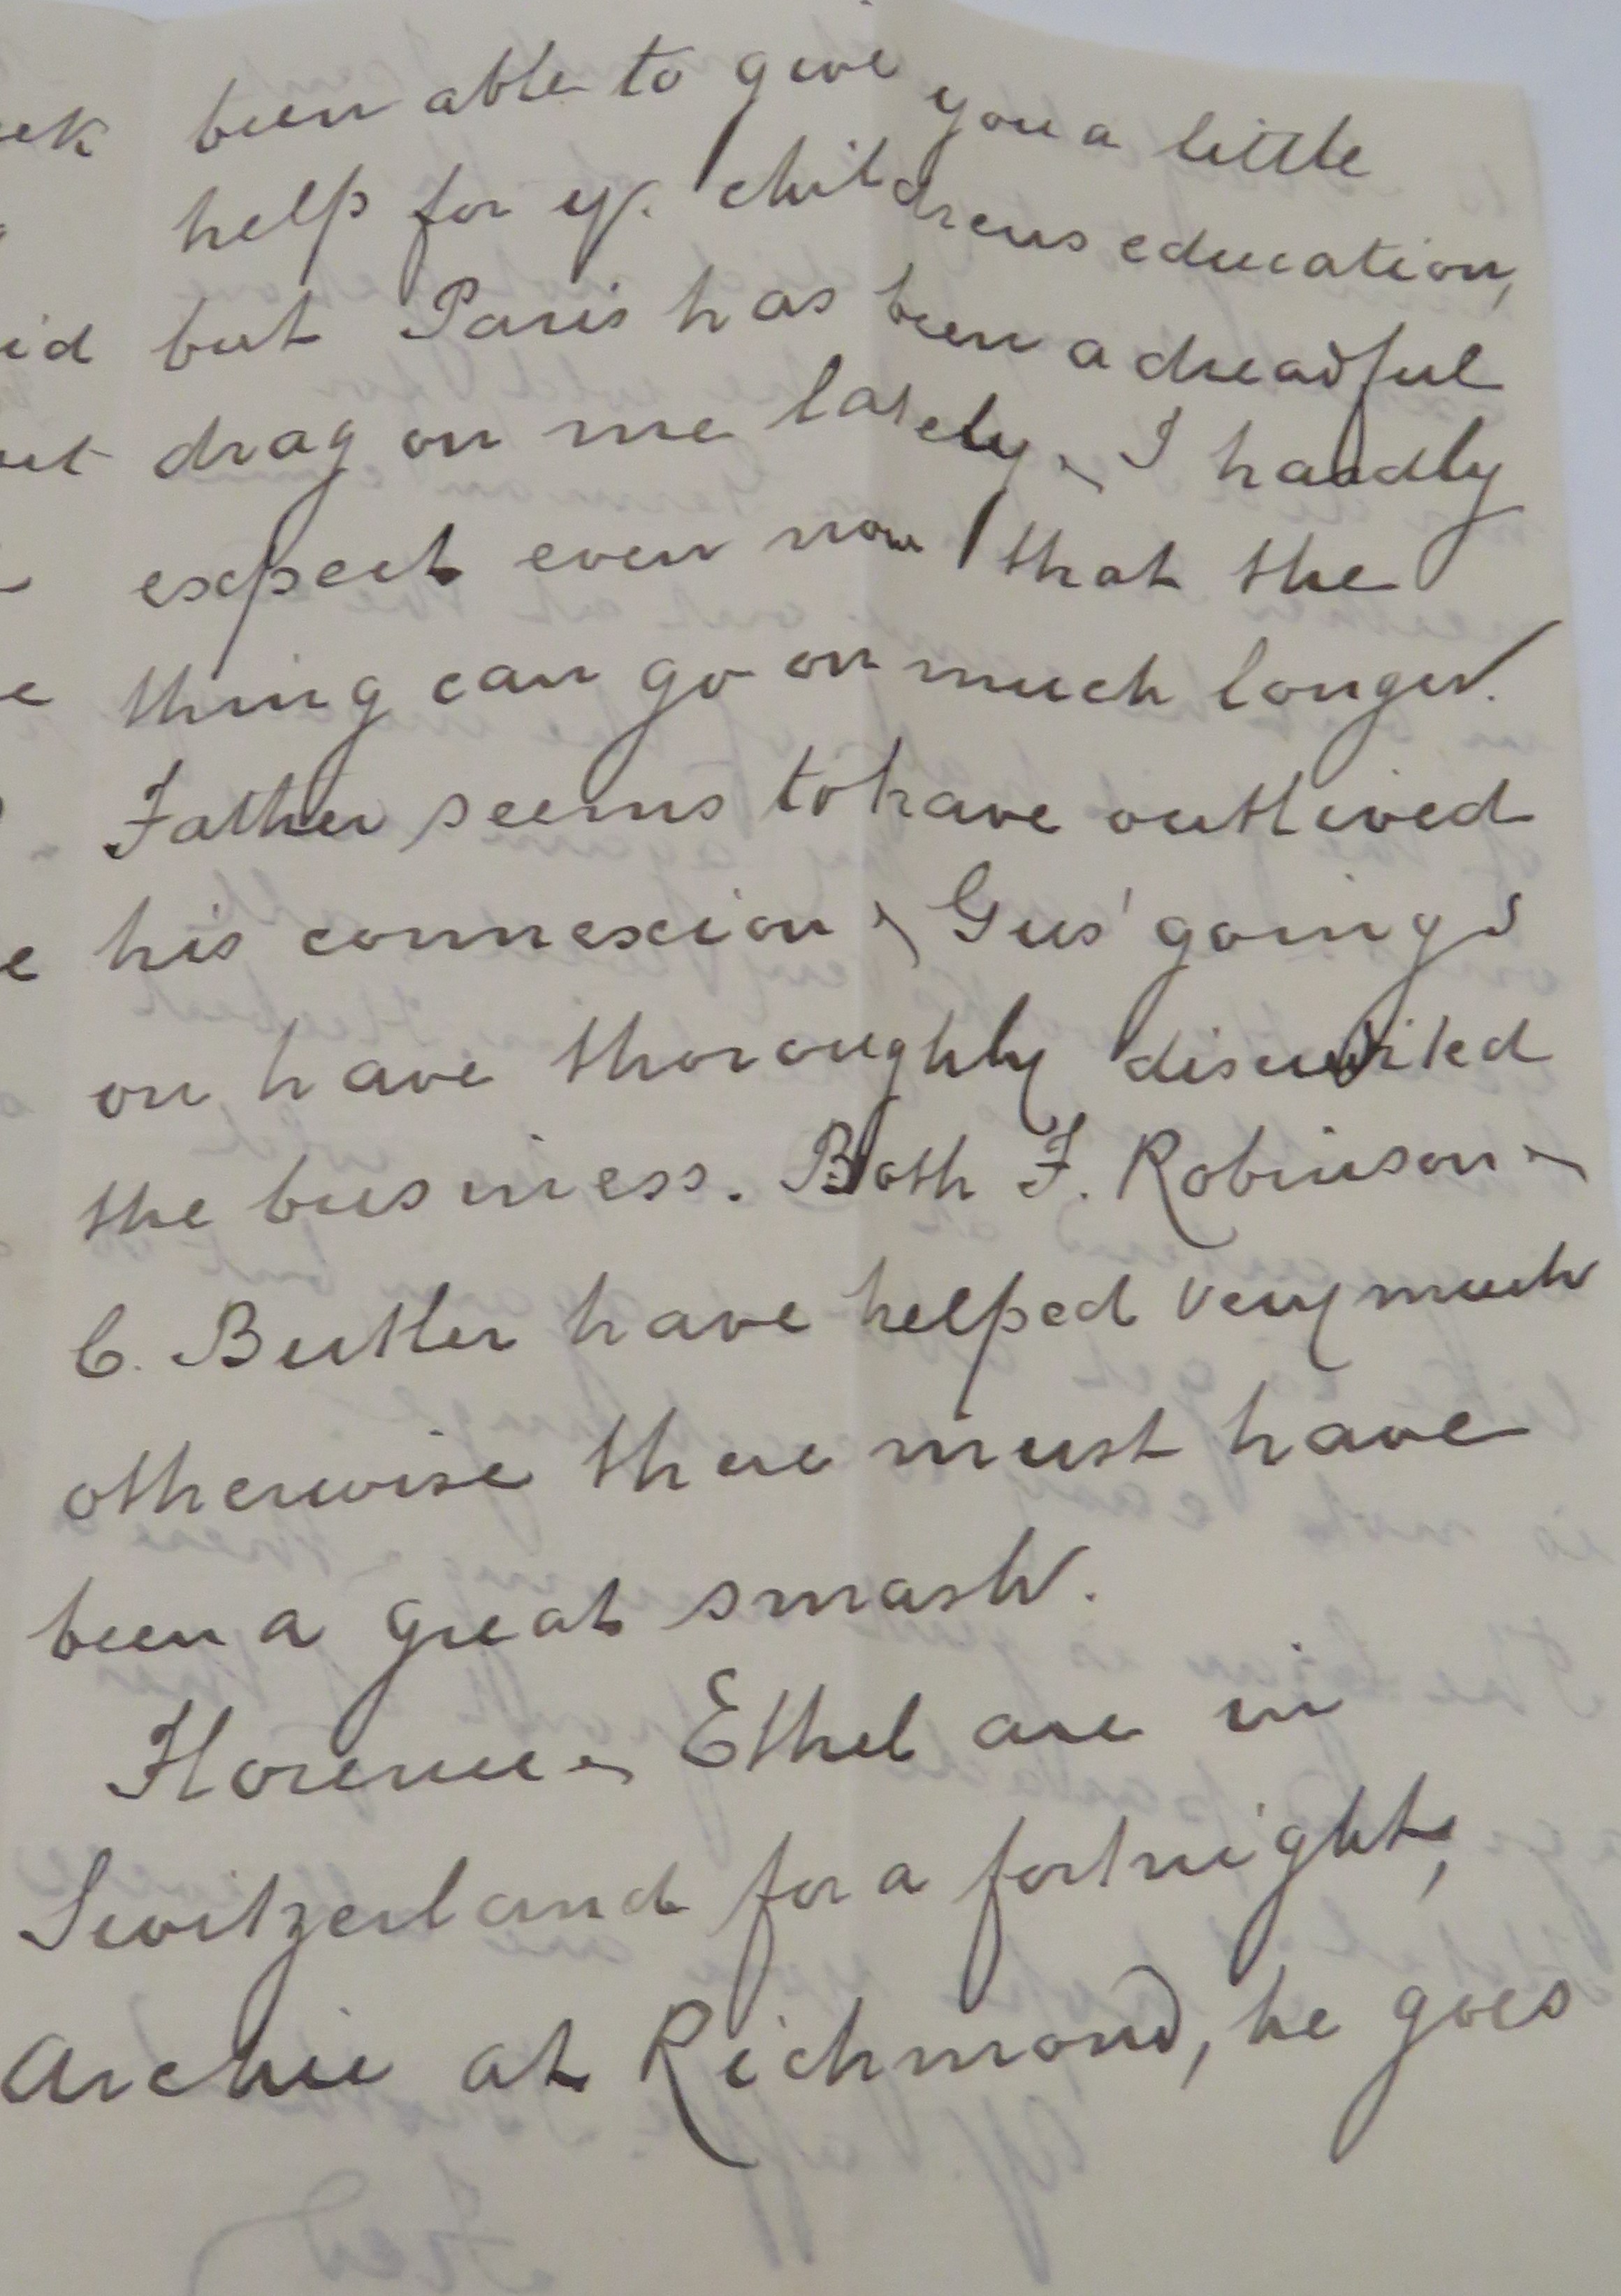 been able to give you a little
help for yr. childrens education,
but Paris has been a dreadful
drag on me lately & I hardly
expect even now that the
thing can go on much longer.
Father seems to have outlived
his connexion & Gus' goings
on have thoroughly discredited
the business. Both F. Robinson &
C. Butler have helped very much
otherwise there must have
been a great smash.
Florence & Ethel are in
Switzerland for a fortnight,
Archie at Richmond, he goes